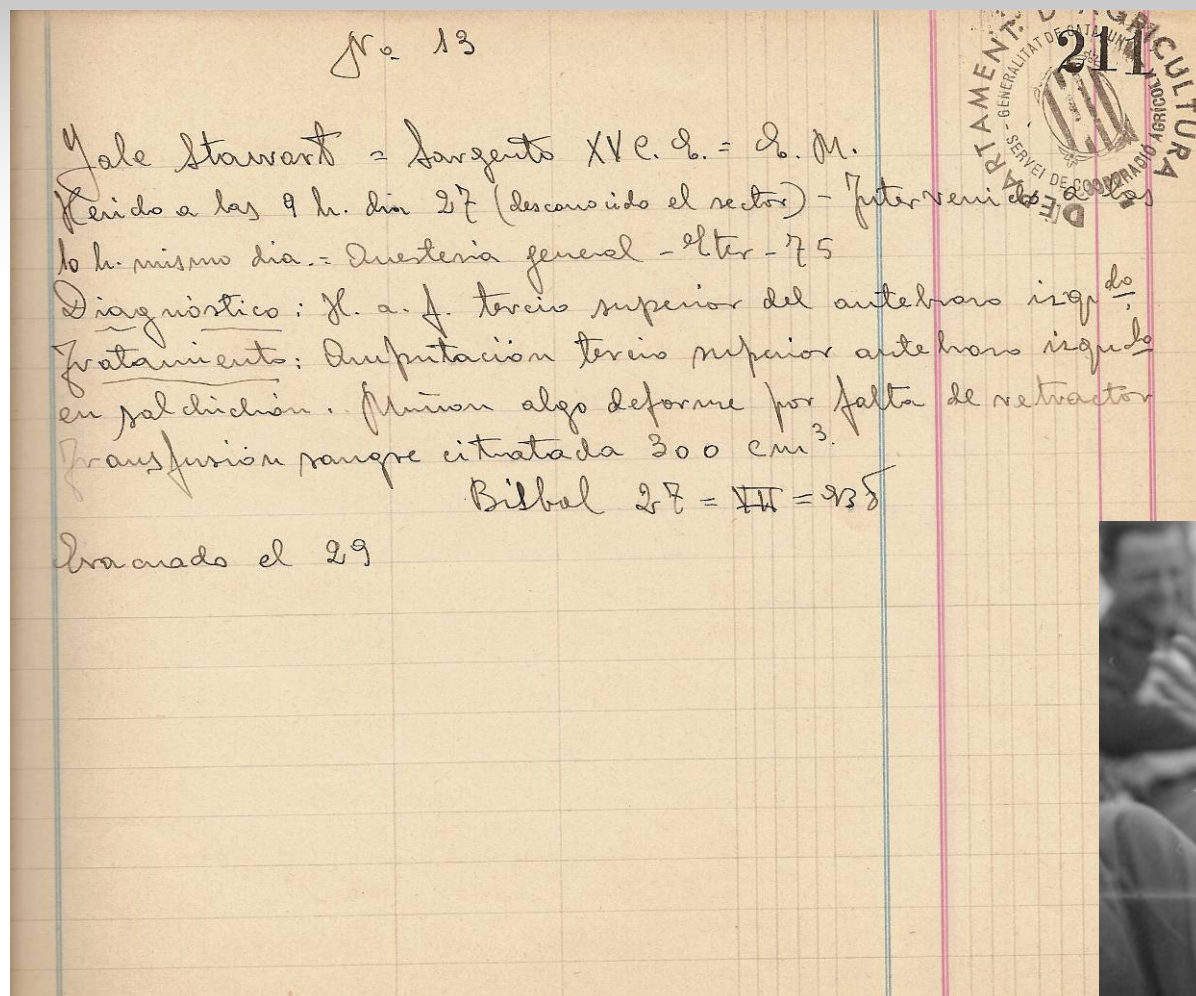 Nº 13
211
DEPARTAMENT D'AGRICULTURA
GENERALITAT DE CATALUNYA
SERVEI DE COOPERACIÓ AGRÍCOLA
Yale Stawart = Sargento XV C. E. = E. M.
Herido a las 9 h. dia 27 (desconocido el sector) - Intervenido a las
10 h. mismo dia. = Anestesia general - Eter - 75
Diagnóstico: H. a. f. tercio superior del antebrazo izqdo.
Tratamiento: Amputación tercio superior antebrazo izqudo
en salchichón. Muñon algo deforme por falta de retractor
Transfusión sangre citratada 300 cm³.
Bisbal 27 = VII = 938
Evacuado el 29